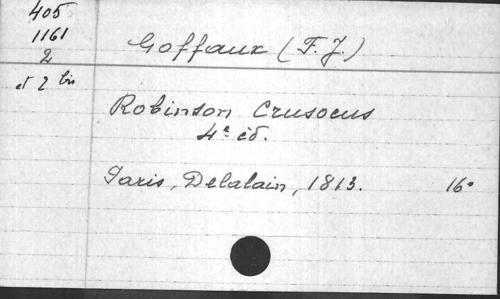 405
1161
2
et 2 bis
Goffaux (F. J.)
Robinson Crusoeus
4e éd.
Paris, Delalain, 1813. 16°